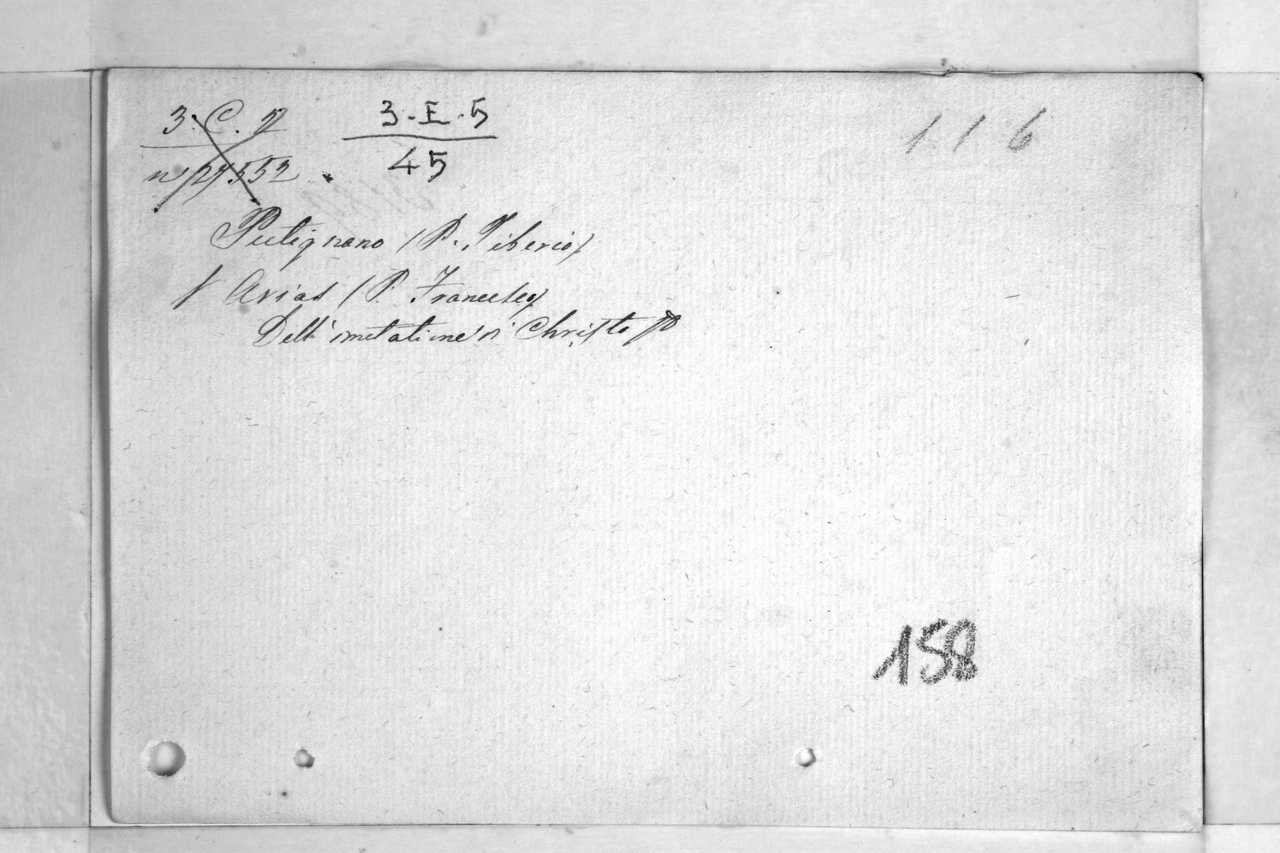 3. C. 7 3-E-5 116
n 27552 . 45
Putignano (P. Tiberio)
Arias (P. Francesco)
Dell' imitatione di Christo
158